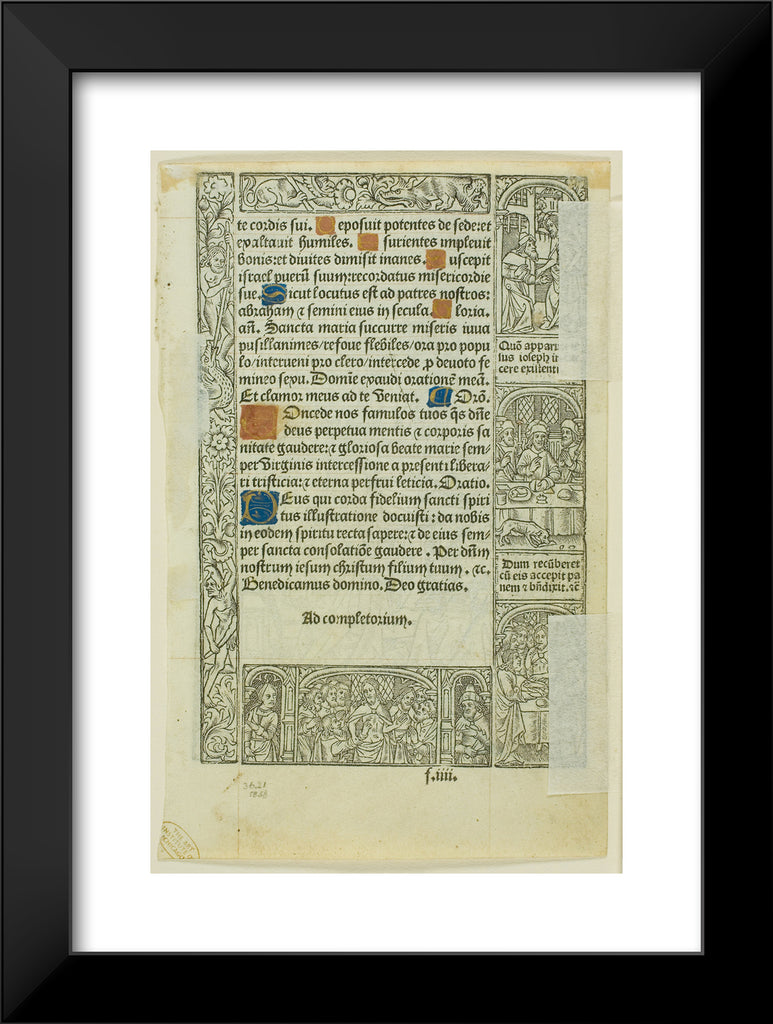 te cordis sui. Deposuit potentes de sede: et
exaltauit humiles. Esurientes impleuit
bonis: et diuites dimisit inanes. Suscepit
israel puerū suum: recordatus misericordie
sue. Sicut locutus est ad patres nostros:
abraham ⁊ semini eius in secula. Gloria.
añ. Sancta maria succurre miseris iuua
pusillanimes/ refoue flebiles/ ora pro popu
lo/ interueni pro clero/ intercede ꝓ deuoto fe
mineo sexu. Domīe exaudi orationē meā.
Et clamor meus ad te veniat. Orō.
Concede nos famulos tuos q̄s dn̄e
deus perpetua mentis ⁊ corporis sa
nitate gaudere: ⁊ gloriosa beate marie sem
per virginis intercessione a presenti libera-
ri tristicia: ⁊ eterna perfrui leticia. Oratio.
Deus qui corda fidelium sancti spiri
tus illustratione docuisti: da nobis
in eodem spiritu recta sapere: ⁊ de eius sem-
per sancta consolatiōe gaudere. Per dn̄m
nostrum iesum christum filium tuum. ⁊c.
Benedicamus domino. Deo gratias.
Ad completorium.
f.iiii.
Quō appari
tus ioseph i
cere exiſtenti
Dum recūberet
cū eis accepit pa
nem ⁊ bn̄dixit. ⁊c̄
36.21
1838
THE ART
INSTITUTE OF
CHICAGO